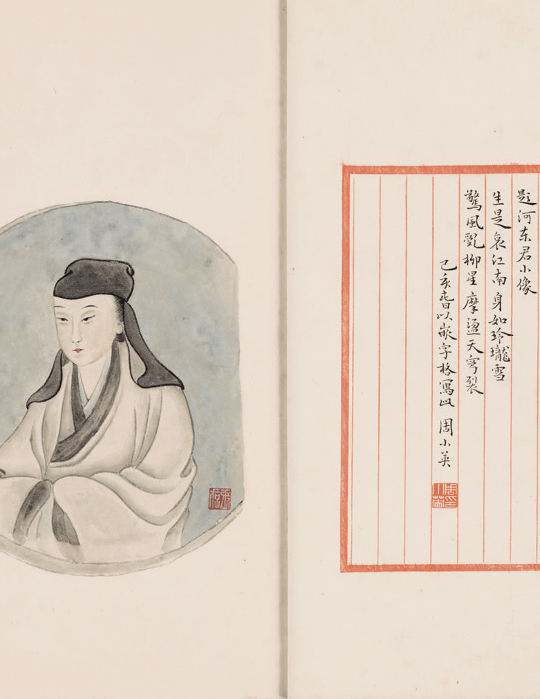 题河东君小像
生是哀江南身如玲瓏雪
驚風亂柳星摩盪天穹裂
己亥旾以嵌字格寫此 周小英